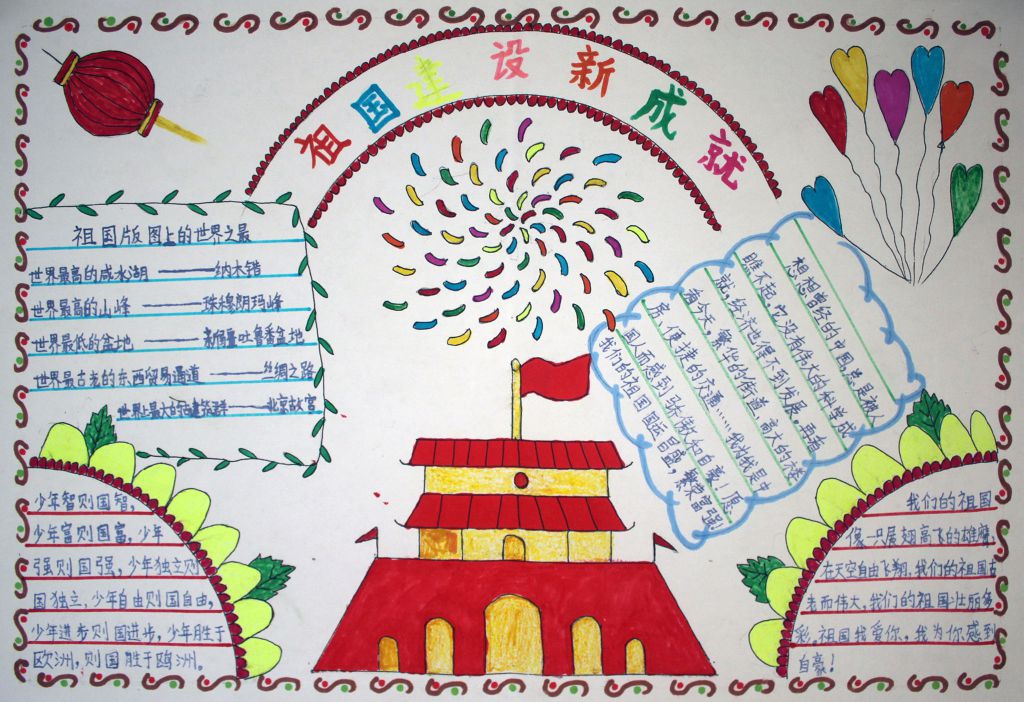 祖国建设新成就
祖国版图上的世界之最
世界最高的咸水湖 ———纳木错
世界最高的山峰 ———珠穆朗玛峰
世界最低的盆地 ———新疆吐鲁番盆地
世界最古老的东西贸易通道 ———丝绸之路
世界上最大的古建筑群———北京故宫
想想曾经的中国,总是被
瞧不起,没有伟大的科学成
就,经济也得不到发展。再看
看今天,繁华的街道,高大的楼
房、便捷的交通……我为我是中
国人而感到骄傲和自豪!愿
我们的祖国国运昌盛,繁荣富强!
少年智则国智,
少年富则国富,少年
强则国强,少年独立则
国独立,少年自由则国自由,
少年进步则国进步,少年胜于
欧洲,则国胜于鸥洲。
我们的祖国
像一只展翅高飞的雄鹰,
在天空自由飞翔,我们的祖国古
老而伟大,我们的祖国壮丽多
彩。祖国我爱你,我为你感到
自豪!